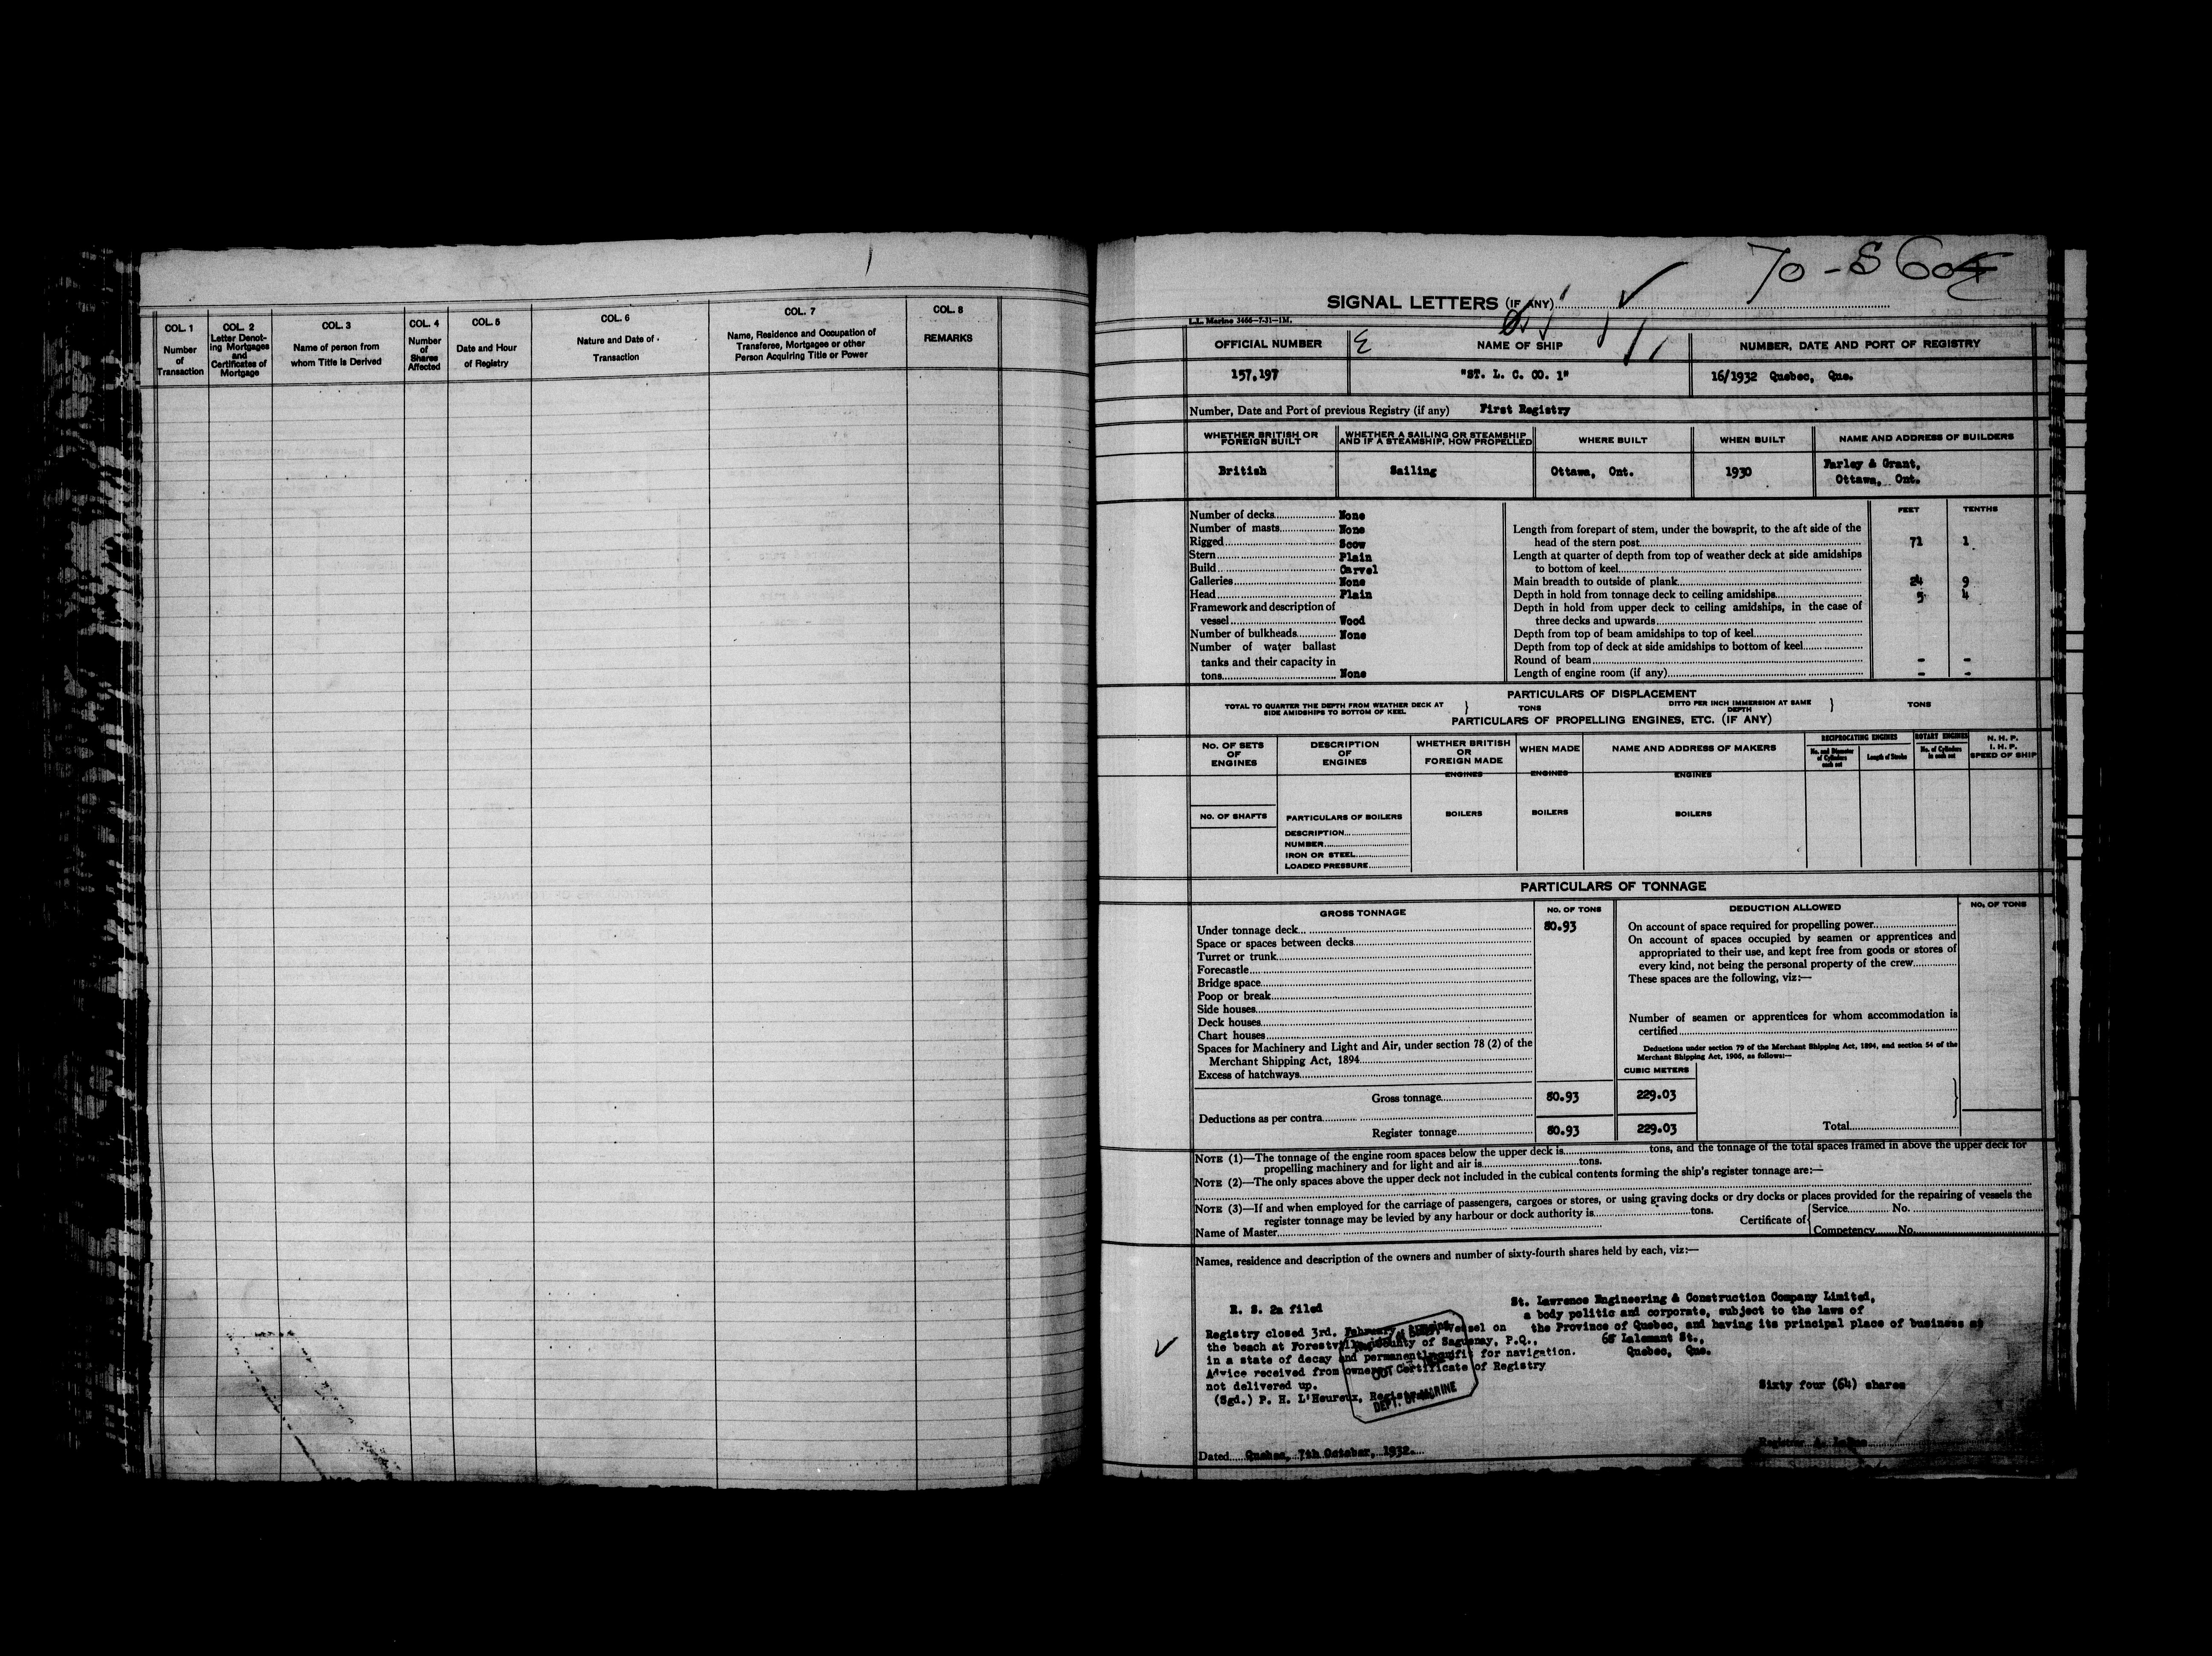 COL. 1
Number
of
Transaction
COL. 2
Letter Denot-
ing Mortgages
and
Certificates of
Mortgage
COL. 3
Name of person from
whom Title is Derived
COL. 4
Number
of
Shares
Affected
COL. 5
Date and Hour
of Registry
COL. 6
Nature and Date of
Transaction
COL. 7
Name, Residence and Occupation of
Transferee, Mortgagee or other
Person Acquiring Title or Power
COL. 8
REMARKS
70 - S 60
SIGNAL LETTERS (IF ANY)
L.L. Marine 3466—7-31—1M.
OFFICIAL NUMBER
NAME OF SHIP
NUMBER, DATE AND PORT OF REGISTRY
157,197
"ST. L. C. CO. 1"
16/1932 Quebec, Que.
Number, Date and Port of previous Registry (if any) First Registry
WHETHER BRITISH OR
FOREIGN BUILT
WHETHER A SAILING OR STEAMSHIP
AND IF A STEAMSHIP, HOW PROPELLED
WHERE BUILT
WHEN BUILT
NAME AND ADDRESS OF BUILDERS
British
Sailing
Ottawa, Ont.
1930
Farley & Grant,
Ottawa, Ont.
Number of decks None
Number of masts None
Rigged Scow
Stern Plain
Build Carvel
Galleries None
Head Plain
Framework and description of
vessel Wood
Number of bulkheads None
Number of water ballast
tanks and their capacity in
tons None
FEET TENTHS
Length from forepart of stem, under the bowsprit, to the aft side of the
head of the stern post 71 1
Length at quarter of depth from top of weather deck at side amidships
to bottom of keel
Main breadth to outside of plank 24 9
Depth in hold from tonnage deck to ceiling amidships 5 4
Depth in hold from upper deck to ceiling amidships, in the case of
three decks and upwards
Depth from top of beam amidships to top of keel
Depth from top of deck at side amidships to bottom of keel
Round of beam - -
Length of engine room (if any) - -
PARTICULARS OF DISPLACEMENT
TOTAL TO QUARTER THE DEPTH FROM WEATHER DECK AT
SIDE AMIDSHIPS TO BOTTOM OF KEEL
TONS
DITTO PER INCH IMMERSION AT SAME
DEPTH
TONS
PARTICULARS OF PROPELLING ENGINES, ETC. (IF ANY)
No. OF SETS
OF
ENGINES
DESCRIPTION
OF
ENGINES
WHETHER BRITISH
OR
FOREIGN MADE
WHEN MADE
NAME AND ADDRESS OF MAKERS
RECIPROCATING ENGINES
No. and Diameter
of Cylinders
each set
Length of Stroke
ROTARY ENGINES
No. of Cylinders
in each set
N. H. P.
I. H. P.
SPEED OF SHIP
ENGINES
ENGINES
ENGINES
NO. OF SHAFTS
PARTICULARS OF BOILERS
BOILERS
BOILERS
BOILERS
DESCRIPTION
NUMBER
IRON OR STEEL
LOADED PRESSURE
PARTICULARS OF TONNAGE
GROSS TONNAGE
NO. OF TONS
DEDUCTION ALLOWED
NO. OF TONS
Under tonnage deck 80.93
Space or spaces between decks
Turret or trunk
Forecastle
Bridge space
Poop or break
Side houses
Deck houses
Chart houses
Spaces for Machinery and Light and Air, under section 78 (2) of the
Merchant Shipping Act, 1894
Excess of hatchways
Gross tonnage 80.93
Deductions as per contra
Register tonnage 80.93
On account of space required for propelling power
On account of spaces occupied by seamen or apprentices and
appropriated to their use, and kept free from goods or stores of
every kind, not being the personal property of the crew
These spaces are the following, viz:—
Number of seamen or apprentices for whom accommodation is
certified
Deductions under section 79 of the Merchant Shipping Act, 1894, and section 54 of the
Merchant Shipping Act, 1906, as follows:—
CUBIC METERS
229.03
229.03
Total
NOTE (1)—The tonnage of the engine room spaces below the upper deck is tons, and the tonnage of the total spaces framed in above the upper deck for
propelling machinery and for light and air is tons.
NOTE (2)—The only spaces above the upper deck not included in the cubical contents forming the ship's register tonnage are:—
NOTE (3)—If and when employed for the carriage of passengers, cargoes or stores, or using graving docks or dry docks or places provided for the repairing of vessels the
register tonnage may be levied by any harbour or dock authority is tons.
Name of Master
Certificate of
Service No.
Competency No.
Names, residence and description of the owners and number of sixty-fourth shares held by each, viz:—
R. S. 2a filed
Registry closed 3rd. February, vessel on
the beach at Forestville, County of Saguenay, P.Q.,
in a state of decay and permanently unfit for navigation.
Advice received from owner. Certificate of Registry
not delivered up.
(Sgd.) P. H. L'Heureux, Registrar
DEPT. OF MARINE
St. Lawrence Engineering & Construction Company Limited,
a body politic and corporate, subject to the laws of
the Province of Quebec, and having its principal place of business at
65 Lalemant St.,
Quebec, Que.
Sixty four (64) shares
Dated Quebec, 7th October, 1932.
Registrar